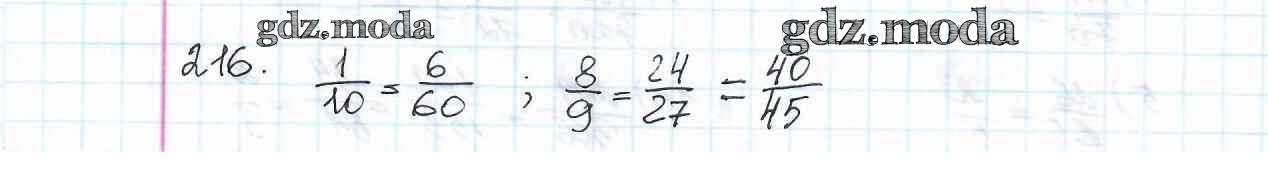 gdz.moda gdz.moda
216. 1/10 = 6/60 ; 8/9 = 24/27 = 40/45